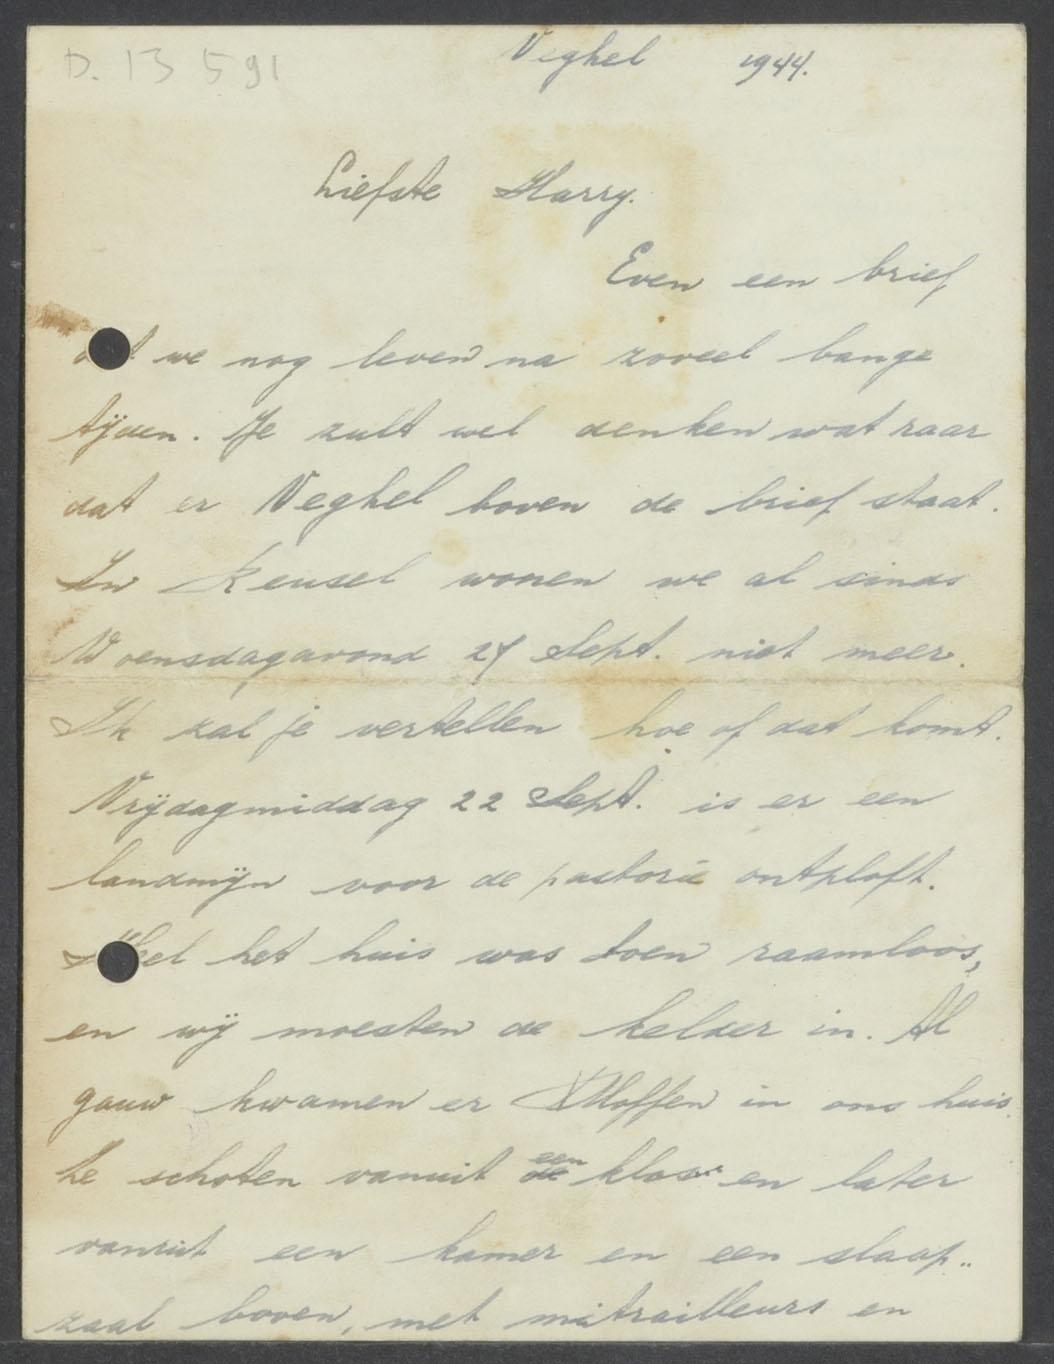 D. 13 591
Veghel 1944.
Liefste Harry.
Even een brief
dat we nog leven na zoveel bange
tijden. Je zult wel denken wat raar
dat er Veghel boven de brief staat.
In Reusel wonen we al sinds
Woensdagavond 27 Sept. niet meer.
Ik zal je vertellen hoe of dat komt.
Vrijdagmiddag 22 Sept. is er een
landmijn voor de pastorie ontploft.
het huis was toen raamloos,
en wij moesten de kelder in. Al
gauw kwamen er Moffen in ons huis.
Ze schoten vanuit een klas en later
vanuit een kamer en een slaap..
zaal boven, met mitrailleurs en